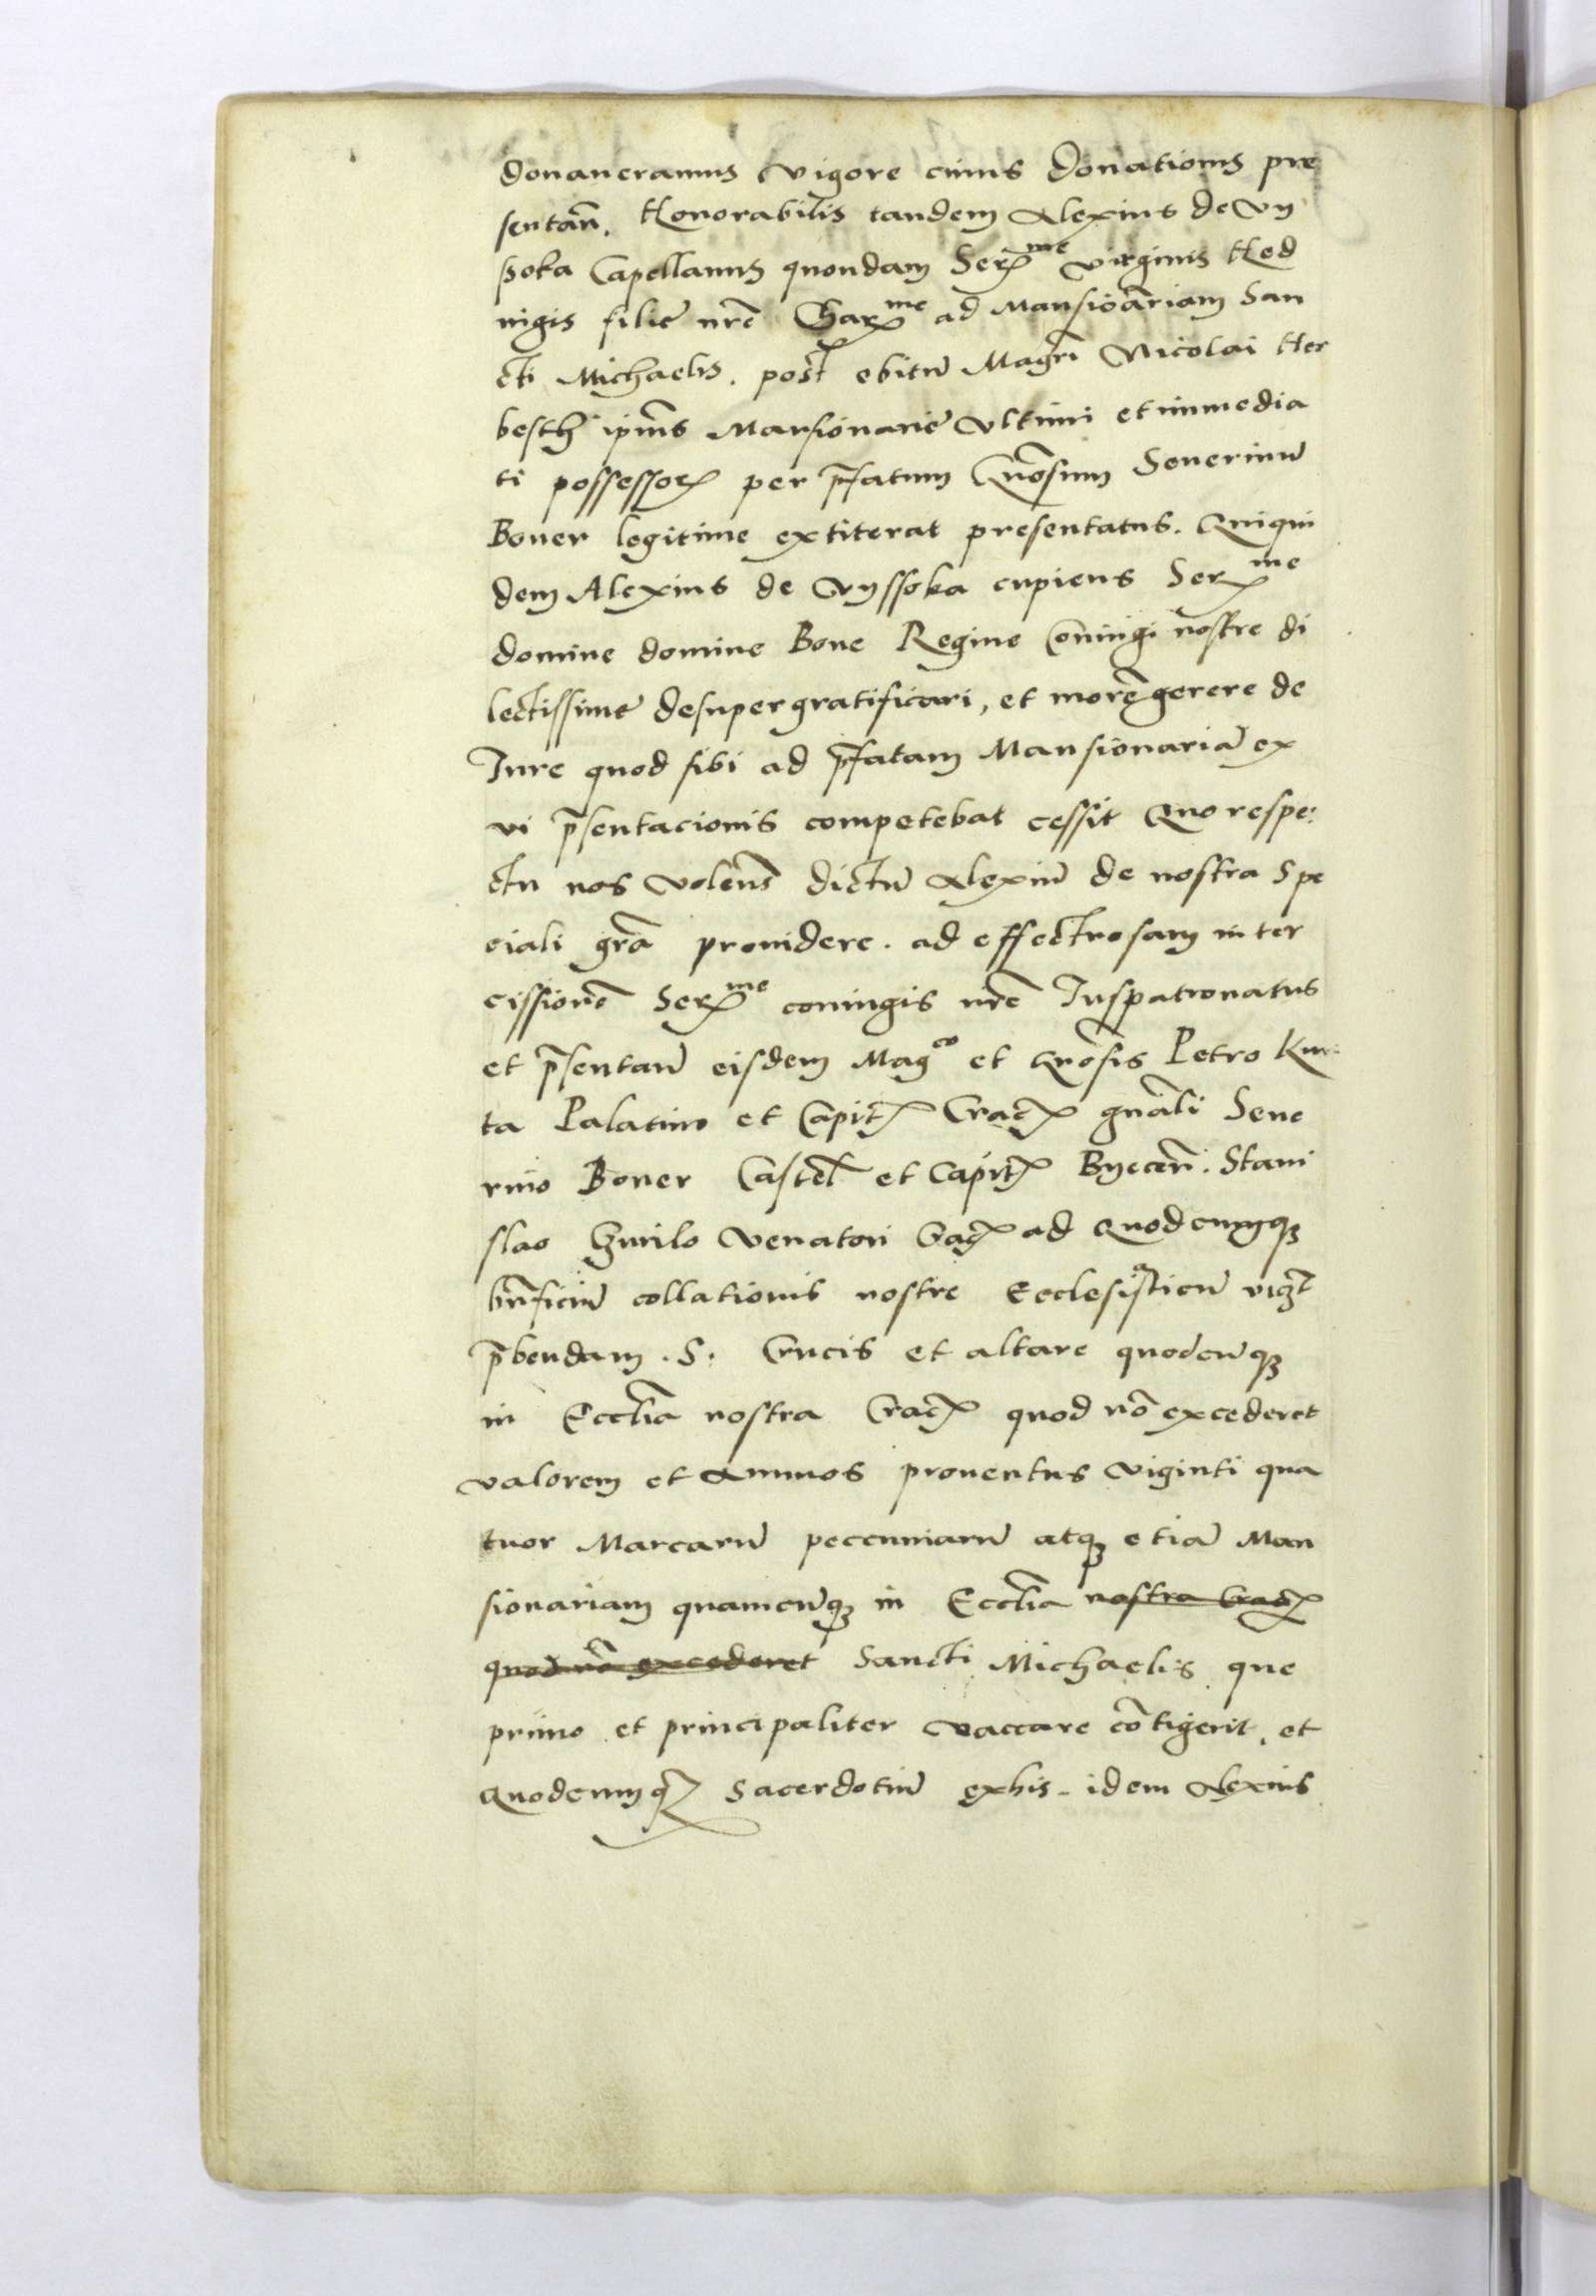 donaueramus Vigore cuius donationis pre
sentan̄. Honorabilis tandem Alexius de Vy
ssoka Capellanus quondam Ser^me Virginis Hed
uigis filie nr̄e Char^me ad Mansioāriam San
cti Michaelis. post obitū Magr̄i Nicolai Her
besth ipīus Mansionarie Vltimi et immedia
ti possessor per p̄fatum Gn̄osum Seuerinū
Boner legitime extiterat presentatus. Quiqui
dem Alexius de Vyssoka cupiens Ser^me
domine domine Bone Regine Cōniugi nostre di
lectissime desuper gratificari, et morē gerere de
Iure quod sibi ad p̄fatam Mansionariā ex
vi p̄sentacionis competebat cessit Quo respe:
ctu nos Volen̄s dictū Alexiū de nostra Spe
ciali gr̄a prouidere. ad effectuosam inter
cissionē Ser^me coniugis nr̄e Iuspatronatus
et p̄sentan̄ eisdem Mag^co et Gn̄osis Petro Km:
ta Palatino et Capit Crac gn̄ali Seue
rino Boner Castel̄ et Capit Byecen̄. Stani
slao Venatori Crac ad Quodcunq3
bn̄ficiū collationis nostre Ecclesiasticū vigȝ
p̄bendam .S. Crucis et altare quodcūq3
in Eccl̄ia nostra Crac quod nō excederet
valorem et Annuos prouentus viginti qua
tuor Marcarū peccuniarū atq3 etiā Man
sionariam quamcūq3 in Eccl̄ia nostra Crac
quod nō excederet Sancti Michaelis que
primo et principaliter vaccare cōtigerit, et
Quodcumq3 Sacerdotiū exhis. idem Alexius